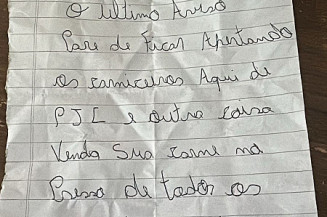 O último Aviso
Pare de Ficar Apertando
os carniceiros Aqui de
PJL e outra coisa
Venda Sua carne no
Presso de todos os